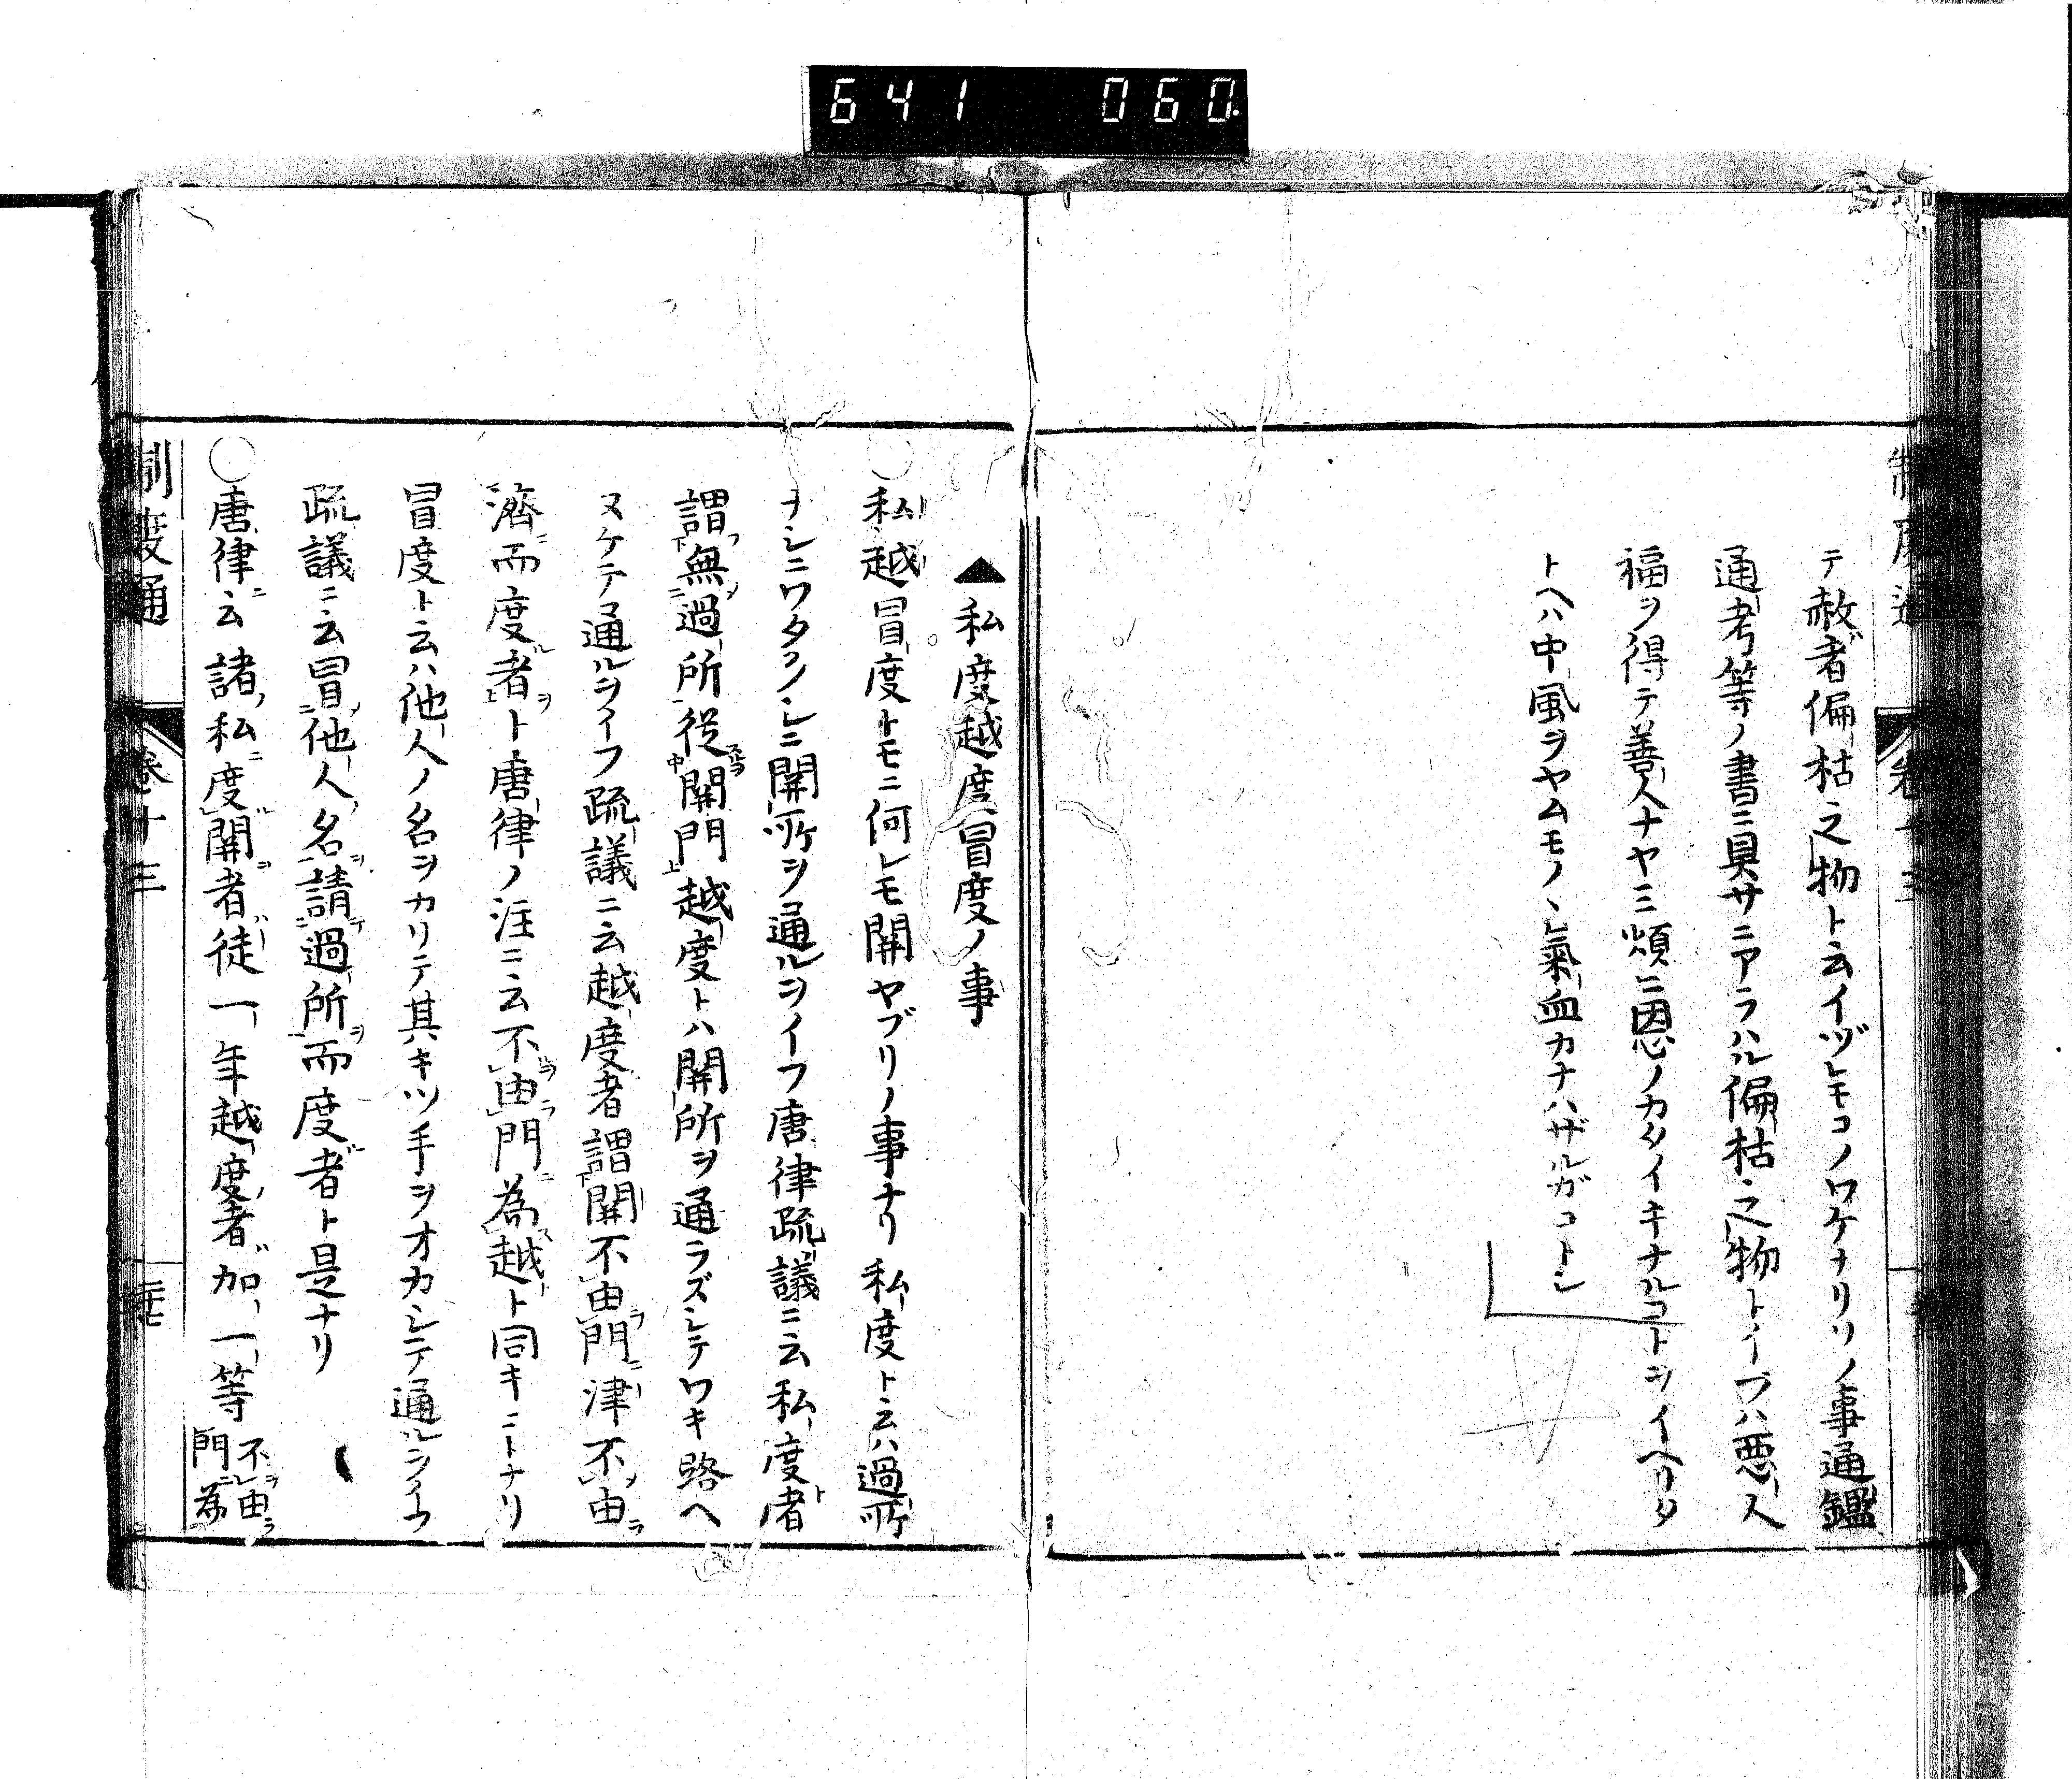 641 060
制度通 卷十三
テ赦者偏枯之物ト云イヅレモコノワケナリリノ事通鑑
通考等ノ書ニ具サニアラハル偏枯之物トイフハ悪人
福ヲ得テ善人ナヤミ煩ニ恩ノカタイキナルコトヲイヘリタ
トヘハ中風ヲヤムモノヽ氣血カナハザルガコトシ
▲私度越度冒度ノ事
○私越冒度トモニ何レモ関ヤブリノ事ナリ私度ト云ハ過所
ナシニワタクシニ関所ヲ通ルヲイフ唐律疏議ニ云私度者
謂無過所従関門越度トハ関所ヲ通ラズシテワキ路ヘ
ヌケテ通ルヲイフ疏議ニ云越度者謂関不由門津不由
濟而度者ト唐律ノ注ニ云不由門為越ト同キコトナリ
冒度ト云ハ他人ノ名ヲカリテ其キツ手ヲオカシテ通ルヲイウ
疏議ニ云冒他人名請過所而度者ト是ナリ
○唐律云諸私度関者徒一年越度者加一等 不由門為
制度通 卷十三